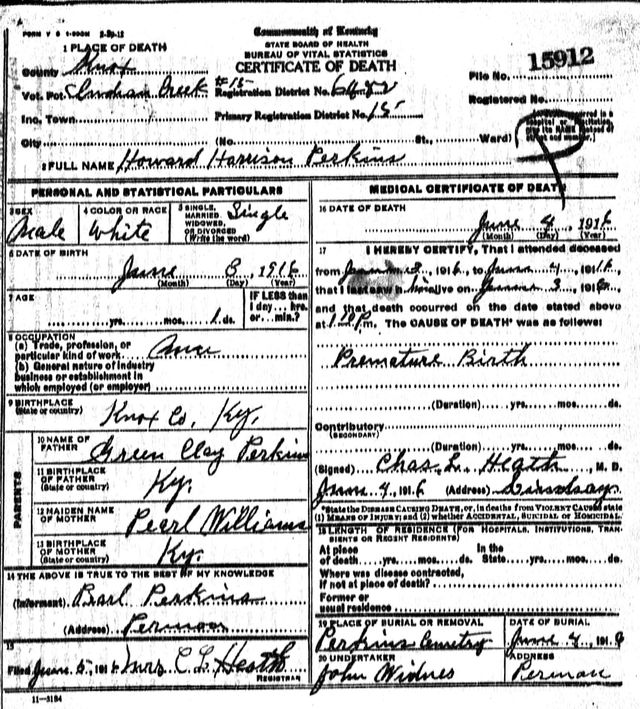 Commonwealth of Kentucky
STATE BOARD OF HEALTH
BUREAU OF VITAL STATISTICS
CERTIFICATE OF DEATH
1 PLACE OF DEATH
County Knox
File No. 15912
Vot. Pct. Indian Creek #15 Registration District No.
Registered No.
Inc. Town Primary Registration District No. 15
City (No. St., Ward)
2 FULL NAME Howard Harrison Perkins
PERSONAL AND STATISTICAL PARTICULARS
3 SEX Male
4 COLOR OR RACE White
5 SINGLE, MARRIED, WIDOWED, OR DIVORCED (Write the word) Single
6 DATE OF BIRTH
June 3, 1916
(Month) (Day) (Year)
7 AGE
yrs. mos. 1 ds.
IF LESS than
1 day... hrs.
or... min.?
8 OCCUPATION
(a) Trade, profession, or
particular kind of work
(b) General nature of industry
business or establishment in
which employed (or employer)
9 BIRTHPLACE
(State or country) Knox Co, Ky.
PARENTS
10 NAME OF FATHER Green Clay Perkins
11 BIRTHPLACE OF FATHER (State or country) Ky.
12 MAIDEN NAME OF MOTHER Pearl Williams
13 BIRTHPLACE OF MOTHER (State or country) Ky.
14 THE ABOVE IS TRUE TO THE BEST OF MY KNOWLEDGE
(Informant) Perkins
(Address)
15
Filed June 5, 1916 Mrs C L Heath
REGISTRAR
11-3184
MEDICAL CERTIFICATE OF DEATH
16 DATE OF DEATH
June 4, 1916
(Month) (Day) (Year)
17 I HEREBY CERTIFY, That I attended deceased
from June 3, 1916, to June 4, 1916,
that I last saw h alive on June 3, 1916,
and that death occurred on the date stated above
at m. The CAUSE OF DEATH* was as follows:
Premature Birth
(Duration) yrs. mos. ds.
Contributory
(SECONDARY)
(Duration) yrs. mos. ds.
(Signed) Chas. L. Heath M. D.
June 4, 1916 (Address) Lindsay
*State the DISEASE CAUSING DEATH, or, in deaths from VIOLENT CAUSES state
(1) MEANS OF INJURY; and (2) whether ACCIDENTAL, SUICIDAL or HOMICIDAL.
18 LENGTH OF RESIDENCE (FOR HOSPITALS, INSTITUTIONS, TRANSIENTS OR RECENT RESIDENTS)
At place In the
of death yrs. mos. ds. State yrs. mos. ds.
Where was disease contracted,
if not at place of death?
Former or
usual residence
19 PLACE OF BURIAL OR REMOVAL
Perkins Cemetry
DATE OF BURIAL
June 4, 1916
20 UNDERTAKER
John Widnes
ADDRESS
Perman